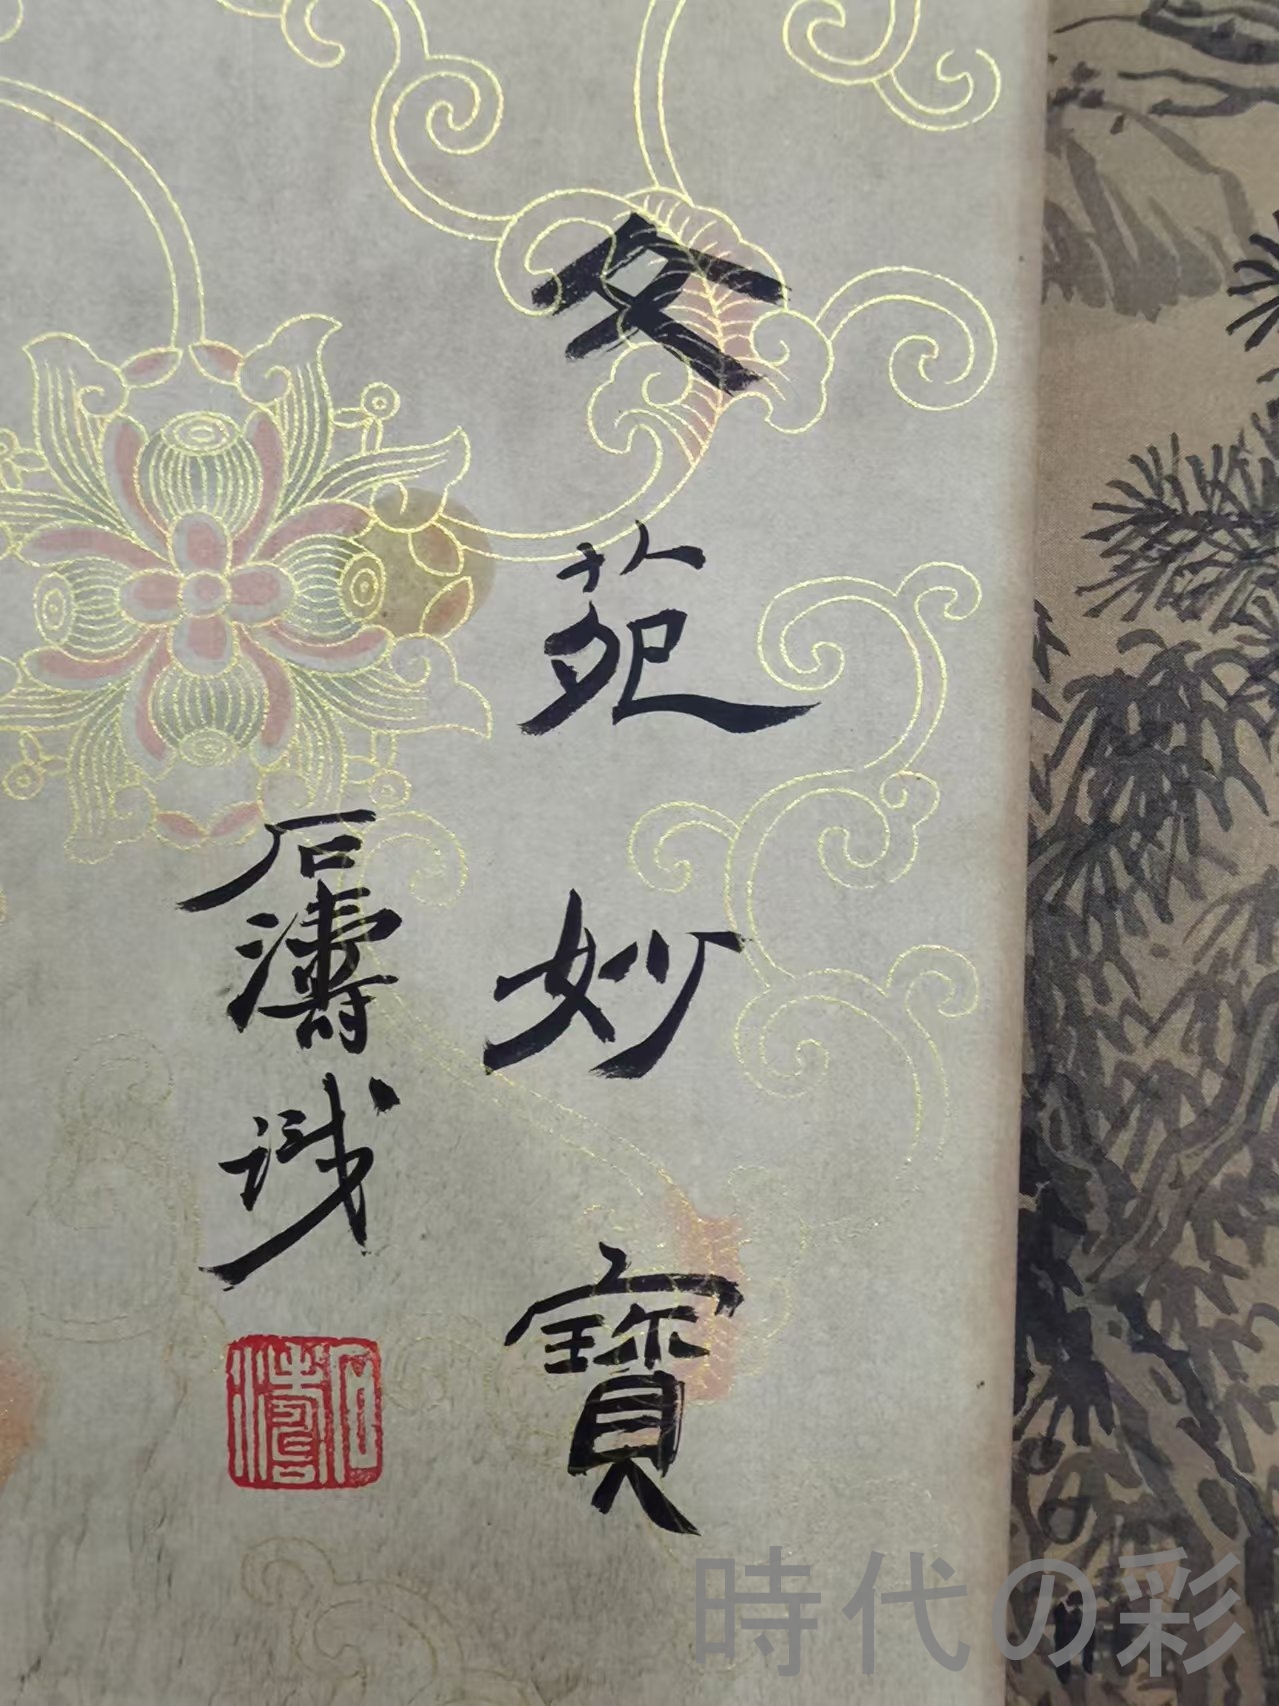 文苑妙寶
石濤識
石濤
時代の彩